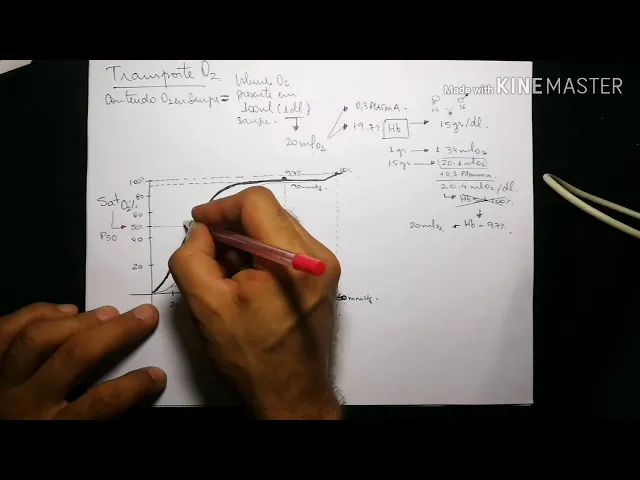 Made with KINEMASTER
Transporte O2
Contenido O2 en Sangre =
Volumen O2
presente en
100ml (1dl)
sangre.
20 ml O2
0,3 Plasma.
19.7% Hb
15gr/dl.
1gr → 1.34 ml O2
15gr → 20.1 ml O2
+0,3 Plasma
20.4 ml O2/dl.
Hb Sat 100%
20 ml → Hb - 97%
Sat O2%
P50
100%
80
60
50%
40
20
97%
90 mmHg
20
mmHg.